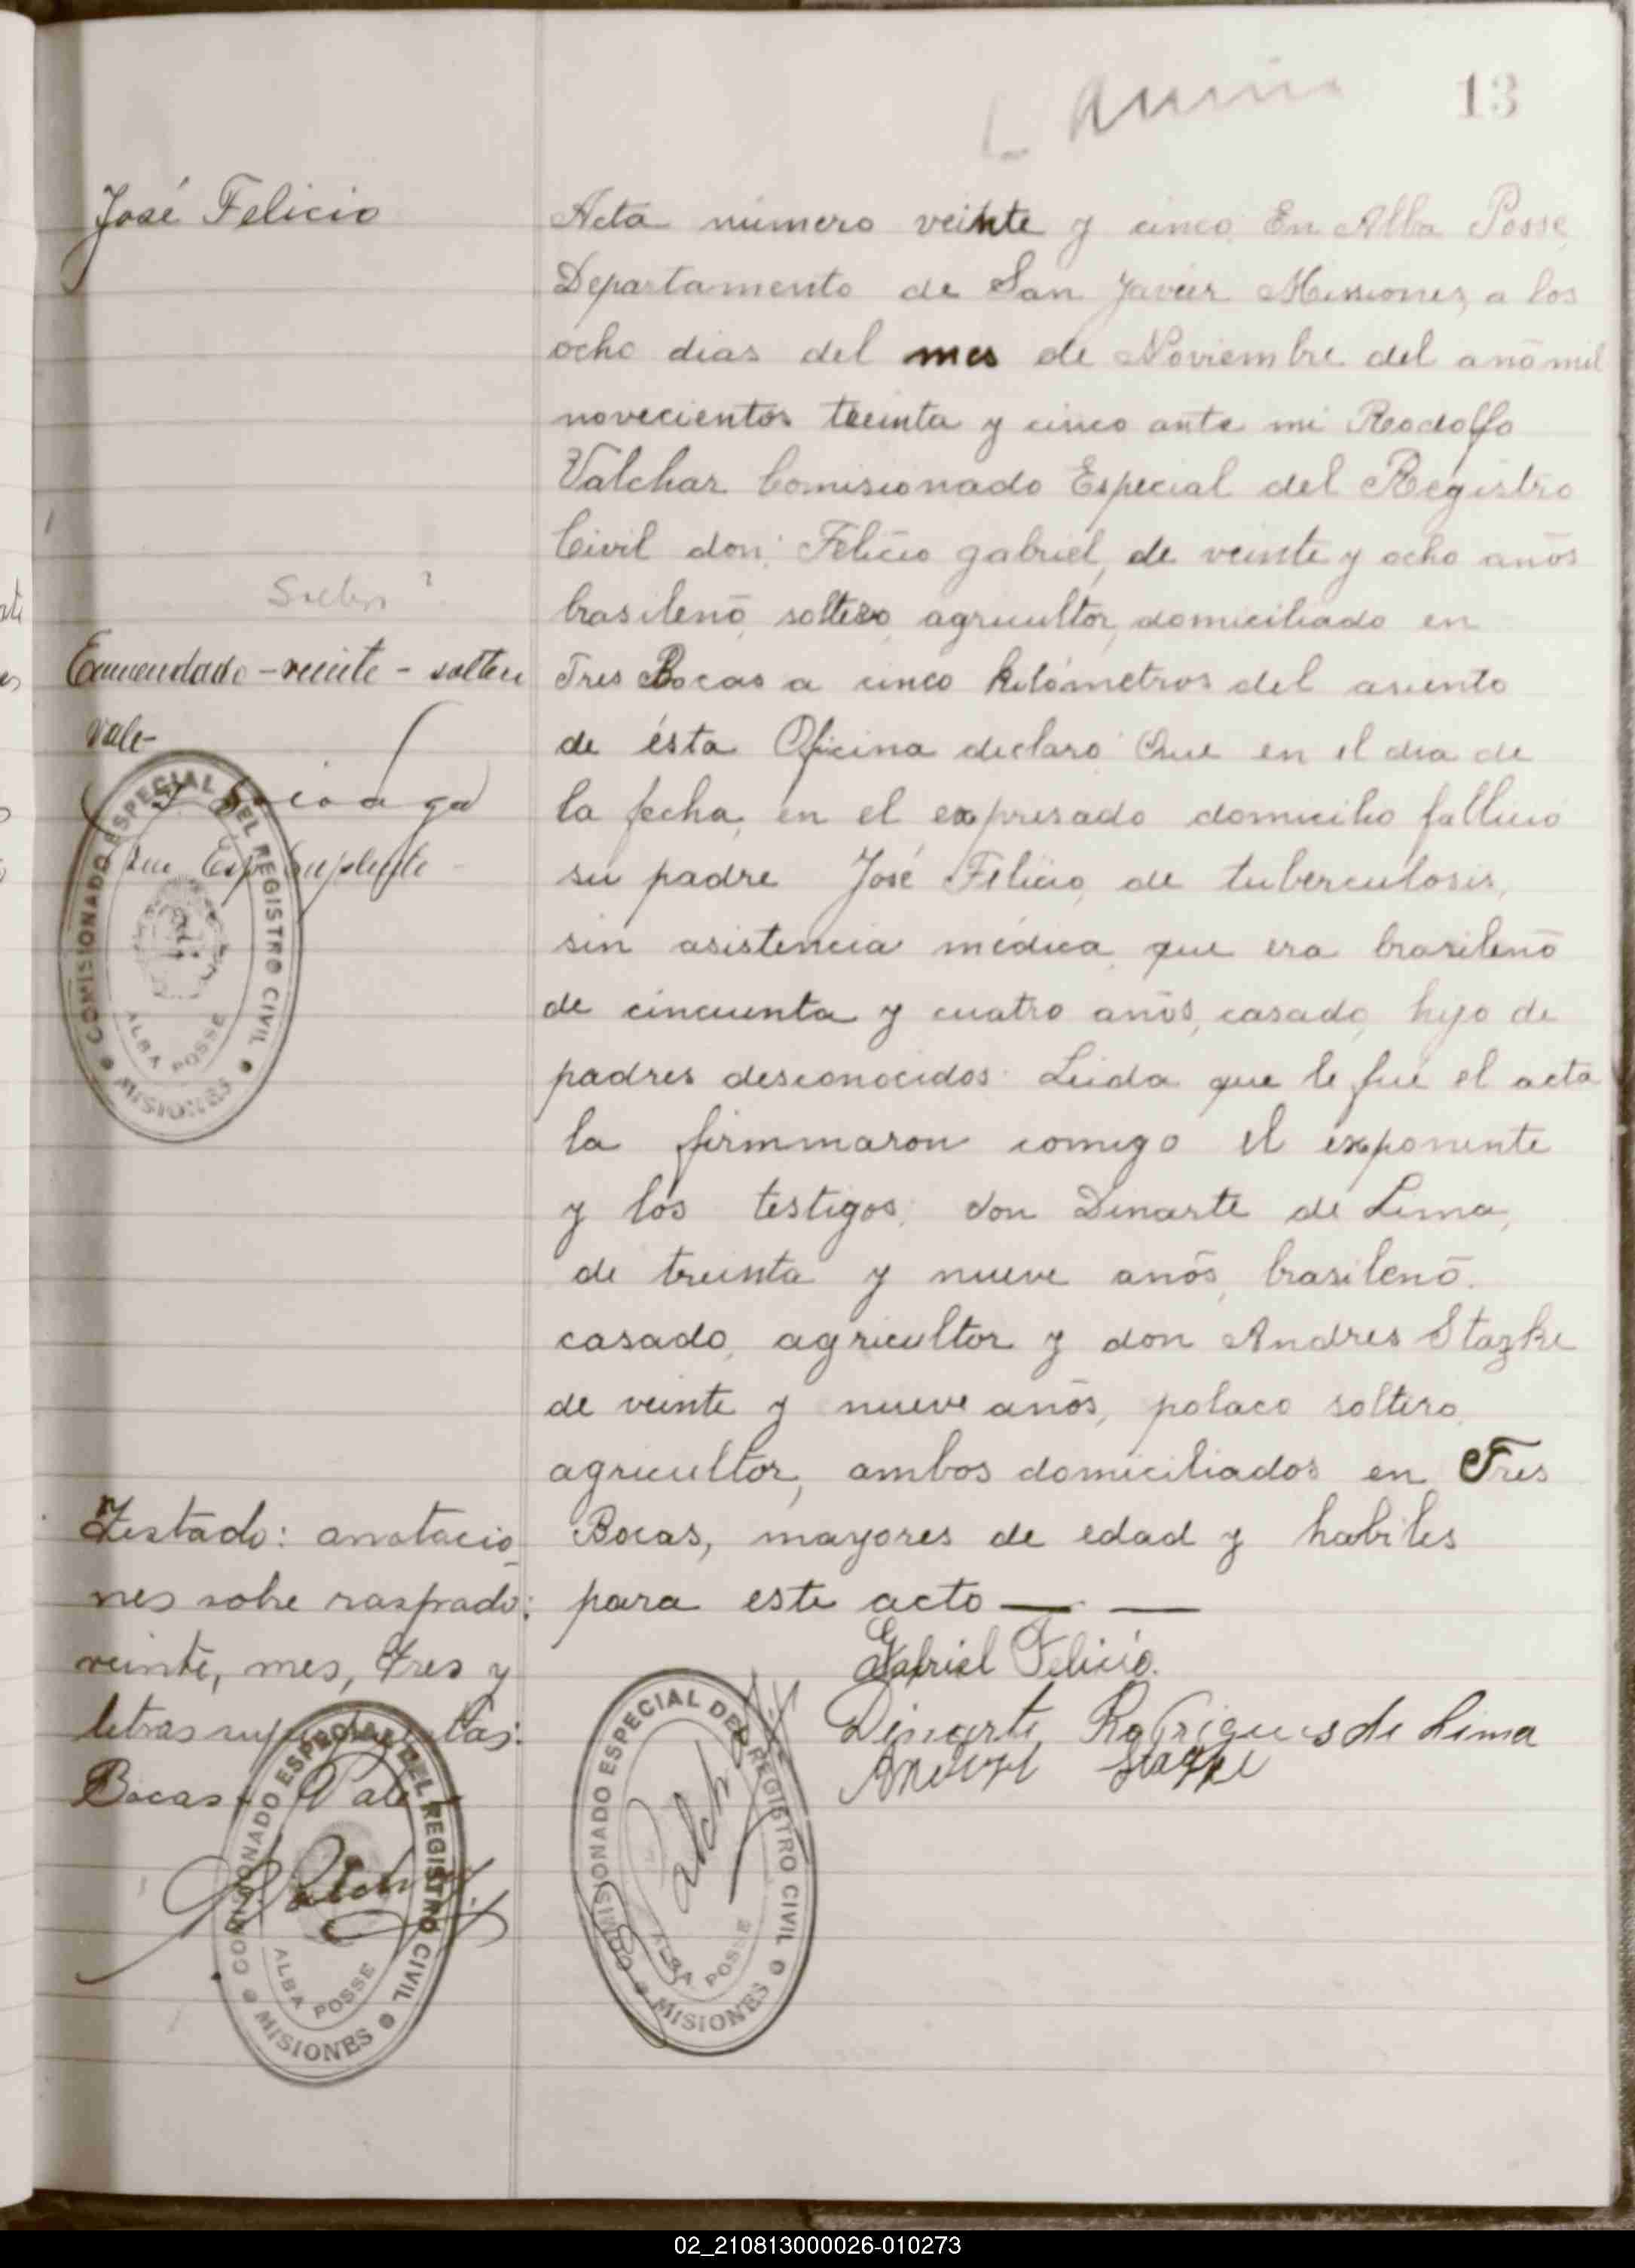 13
José Felicio
Acta número veinte y cinco. En Alba Posse,
Departamento de San Javier Missiones, a los
ocho dias del mes de Noviembre del anō mil
novecientos treinta y cinco ante mi Reodolfo
Valchar Comisionado Especial del Registro
Civil don: Felicio gabriel, de veinte y ocho anōs
brasilenō, soltero, agricultor, domiciliado en
Tres Bocas a cinco kilómetros del asiento
de ésta Oficina declaro: Que en el dia de
la fecha, en el expresado domicilio fallicio
su padre José Felicio, de tuberculosis,
sin asistencia médica, que era brasilenō
de cincuenta y cuatro anōs, casado, hijo de
padres desconocidos. Leida que le fué el acta
la firmmaron comigo el exponente
y los testigos: don Dinarte de Lima,
de treinta y nueve anōs, brasilenō.
casado, agricultor y don Andres Stazke
de veinte y nueve anōs, polaco soltero,
agricultor, ambos domiciliados en Tres
Bocas, mayores de edad y habiles
para este acto — —
Gabriel Felicio.
Dinarte Rodrigues de Lima
Stazke
Enmendado - veinte - soltero
vale-
Esp Suplente -
COMISIONADO ESPECIAL DEL REGISTRO CIVIL
ALBA POSSE
MISIONES
Testado: anotacio
nes sobre raspado:
veinte, mes, Tres y
letras superpuestas:
Bocas: Vale
COMISIONADO ESPECIAL DEL REGISTRO CIVIL
ALBA POSSE
MISIONES
COMISIONADO ESPECIAL DEL REGISTRO CIVIL
ALBA POSSE
MISIONES
02_210813000026-010273